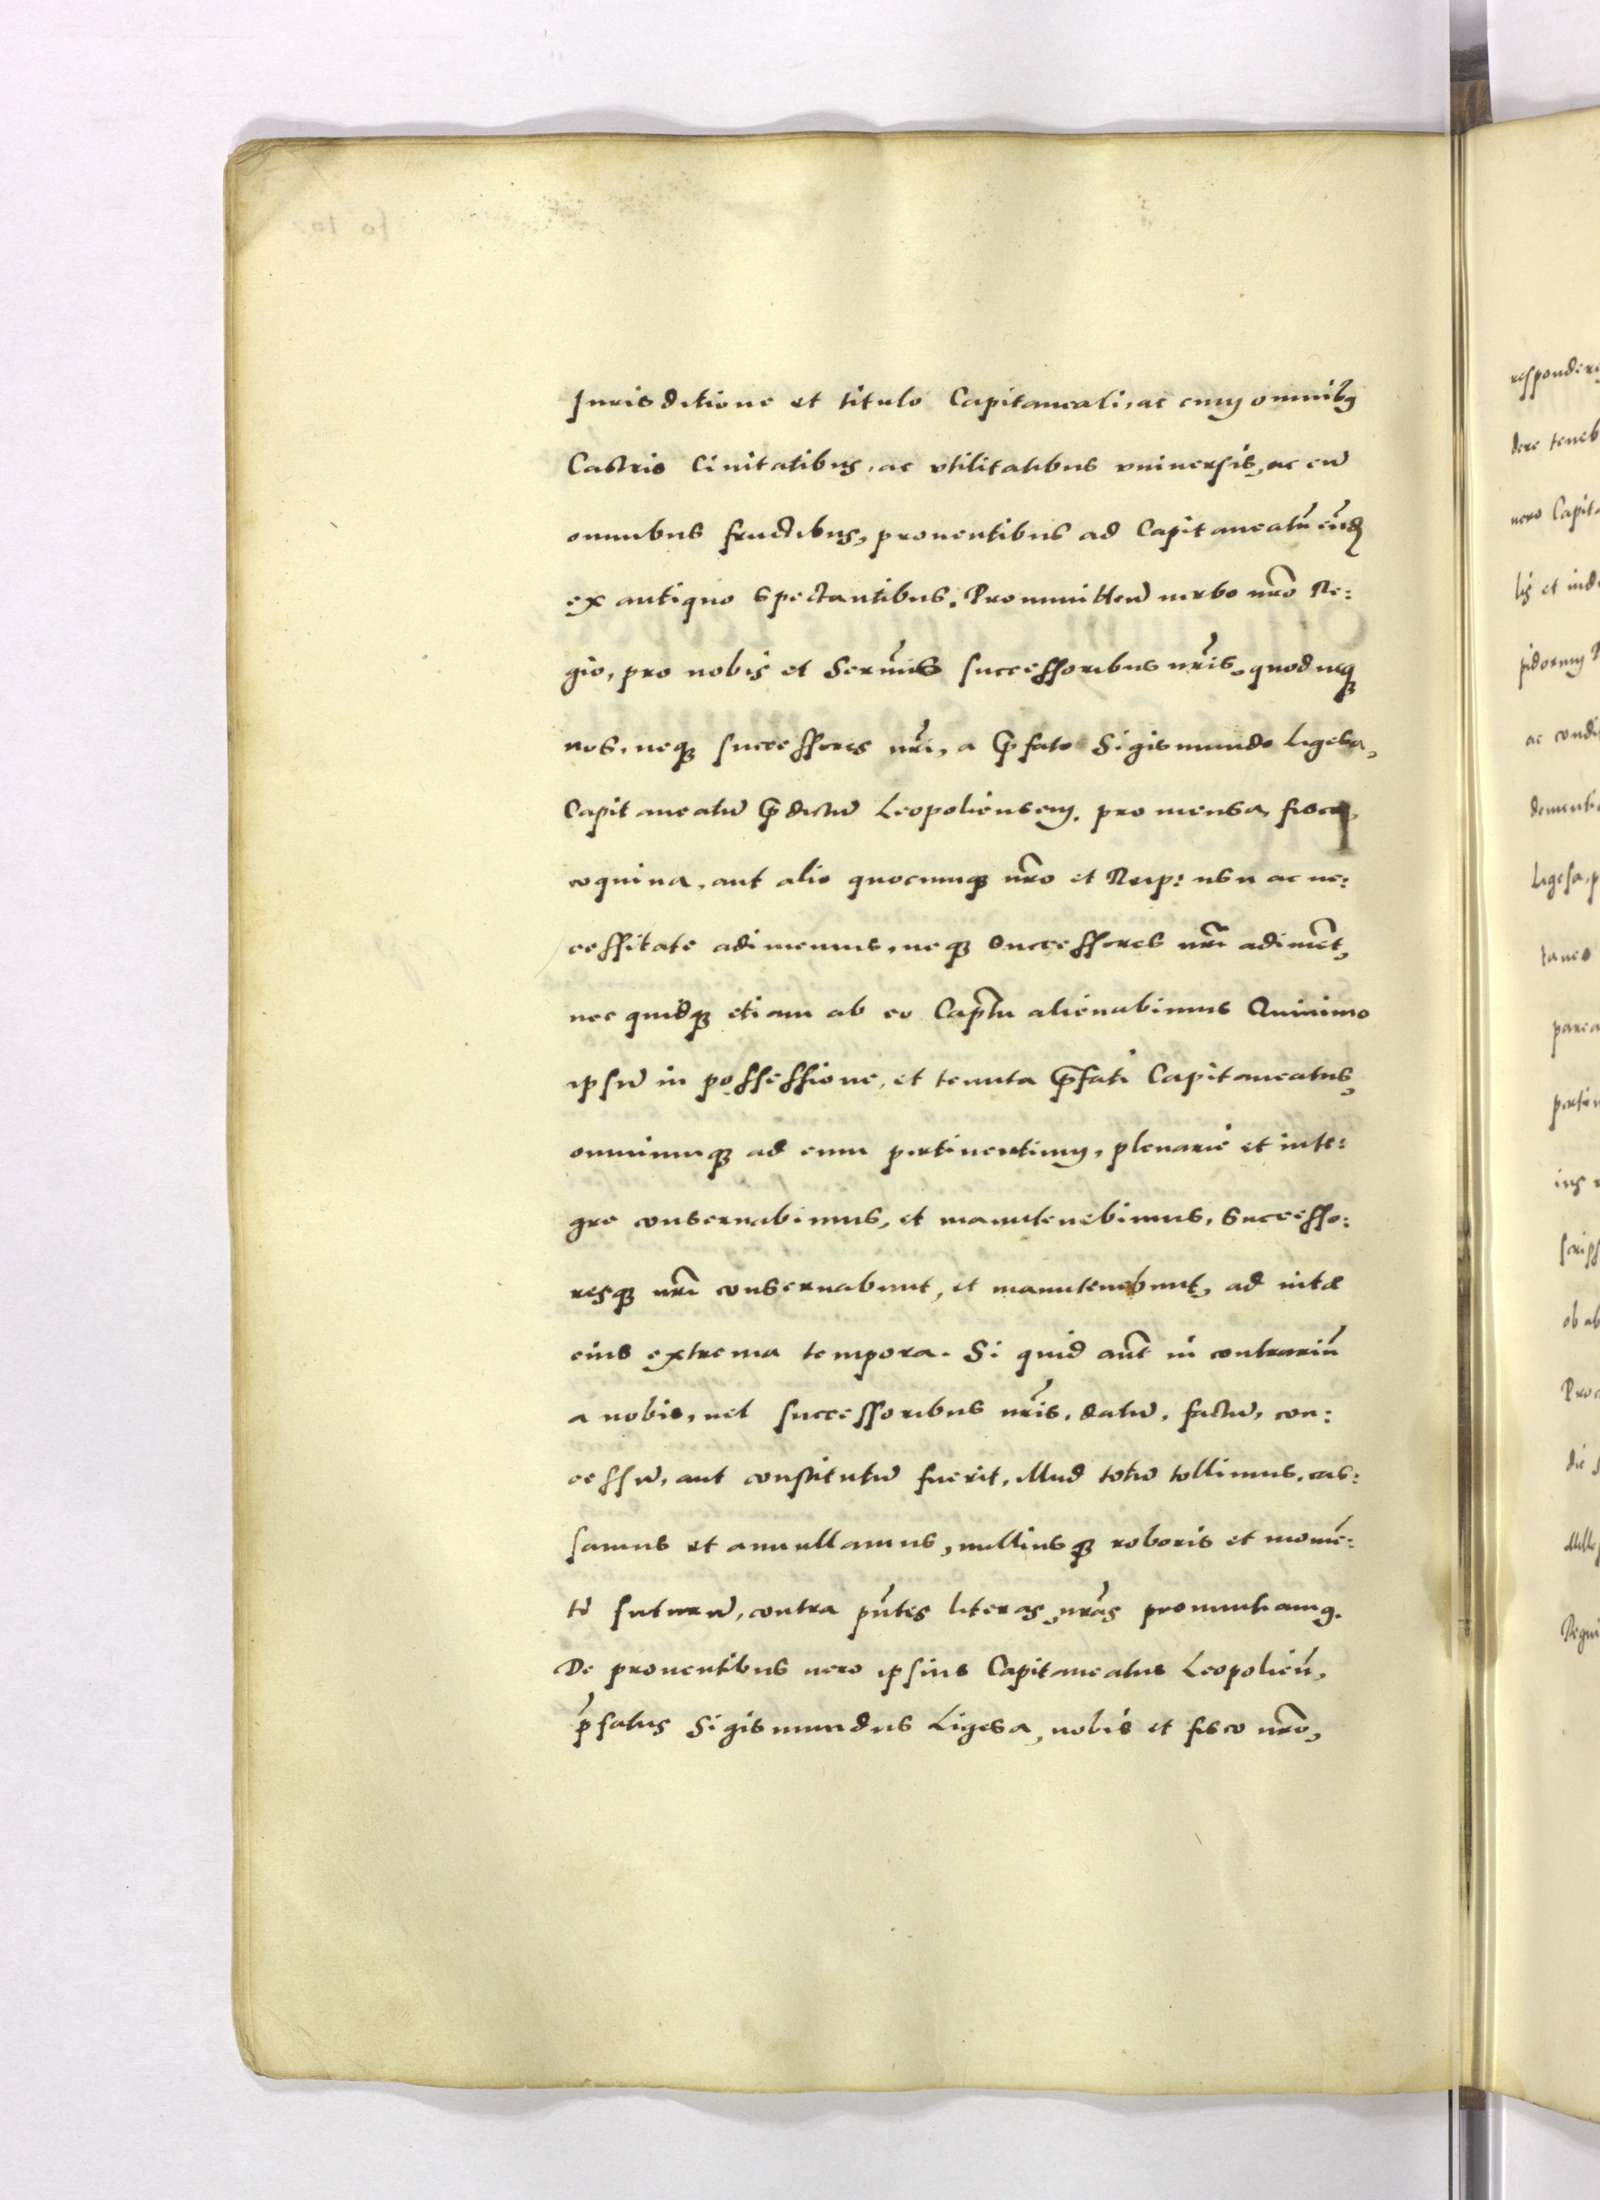 Iurisditione et titulo Capitaneali, ac cum omnibꝰ
Castris Ciuitatibus, ac vtilitatibus vniuersis, ac cũ
omnibus fructibus, prouentibus ad Capitaneatũ eũdẽ
ex antiquo spectantibus. Promittẽ verbo nrõ Re:
gio, pro nobis et Serm̃is successoribus nrĩs, quod neqꝫ
nos, neqꝫ successores nrĩ, a p̃fato Sigismundo Ligesa,
Capitaneatũ p̃dictũ Leopoliensem, pro mensa, fisco,
coquina, aut alio quocumqꝫ nrõ et Reip: usu ac ne:
cessitate adimemus, neqꝫ Successores nrĩ adimẽt,
nec quidqꝫ etiam ab eo Cap̃tu alienabimus Quinimo
ipsũ in possessione, et tenuta p̃fati Capitaneatus,
omniumqꝫ ad eum pertinentium, plenarie et inte:
gre conseruabimus, et manutenebimus, Successo:
resqꝫ nrĩ conseruabunt, et manutenebunt, ad vitæ
eius extrema tempora. Si quid aũt in contrariũ
a nobis, vel successoribus nrĩs, datũ, factũ, con:
cessũ, aut constitutũ fuerit, illud totũ tollimus, cas:
samus et annullamus, nulliusqꝫ roboris et momẽ:
ti futurũ, contra pñtes literas nrãs pronuntiamꝰ.
De prouentibus vero ipsius Capitaneatus Leopolieñ,
p̃fatus Sigismundus Ligesa, nobis et fisco nrõ,